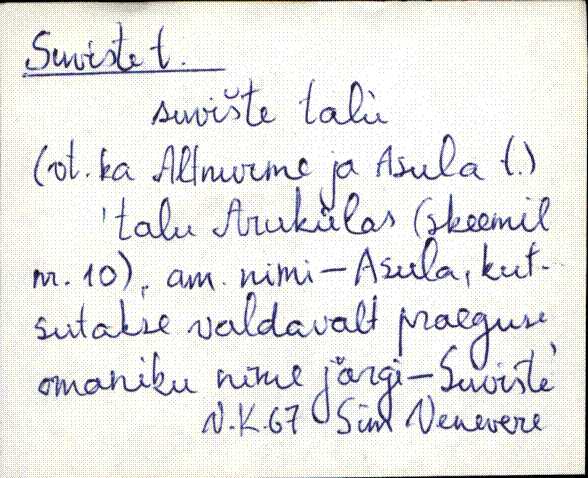 Suviste t.
suvište talu
(vt. ka Altnurme ja Asula t.)
'talu Arukülas (skeemil
nr. 10), am. nimi-Asula, kut-
sutakse valdavalt praeguse
omaniku nime järgi-Suviste'
N.K.67 Sim Venevere